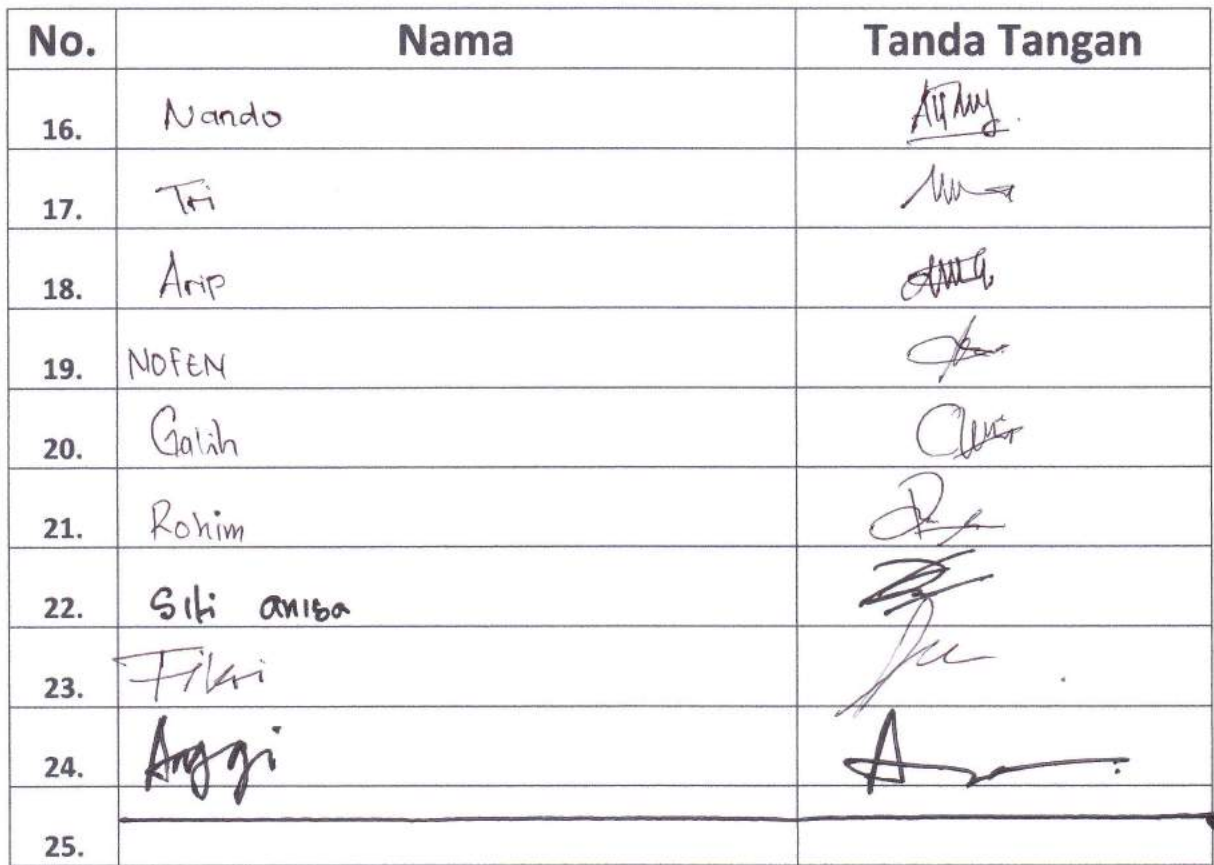 No. Nama Tanda Tangan
16. Nando
17. Tri
18. Arip
19. NOFEN
20. Galih
21. Rohim
22. Siti anisa
23. Fikri
24. Anggi
25.